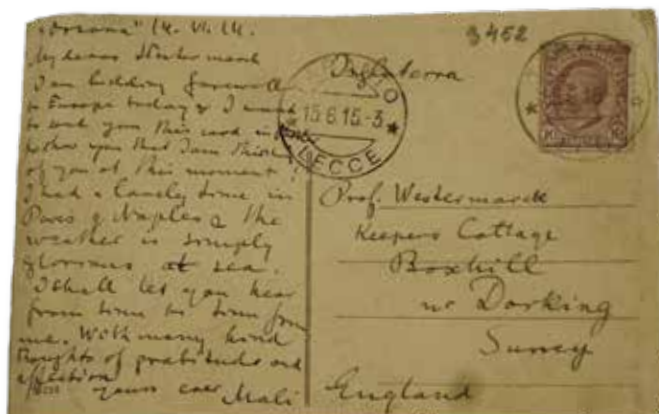 "Orsova" 14. VI. 14.
My dear Westermarck
I am bidding farewell
to Europe today & I want
to send you this card in order
to show you that I am thinking
of you at this moment.
I had a lovely time in
Paris & Naples & the
weather is simply
glorious at sea.
I shall let you hear
from time to time from
me. With many kind
thoughts of gratitude and
affection
yours ever Mali
3452
Inglaterra
15.6.15.-3
LECCE
Prof. Westermarck
Keepers Cottage
Boxhill
nr Dorking
Surrey
England